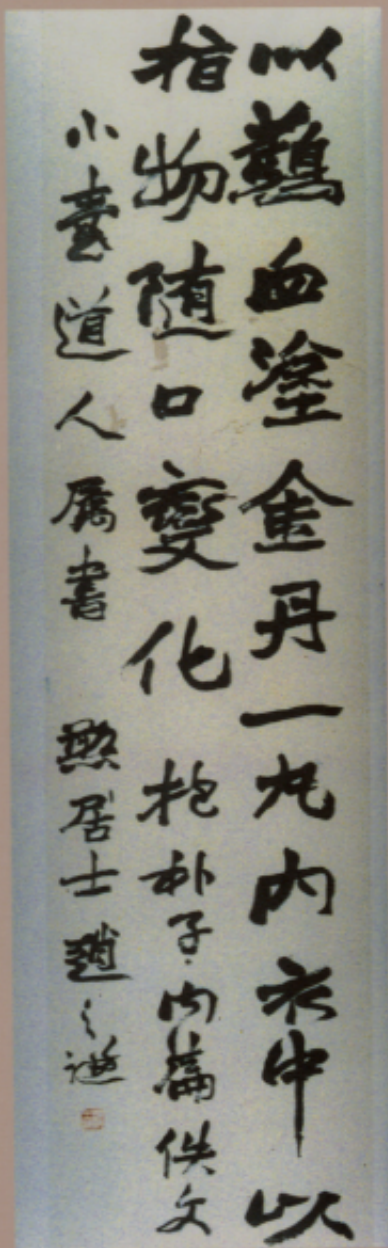 以鸛血塗金丹一丸內衣中以
指物随口變化 抱朴子內篇佚文
小道人屬書 憨居士趙之謙